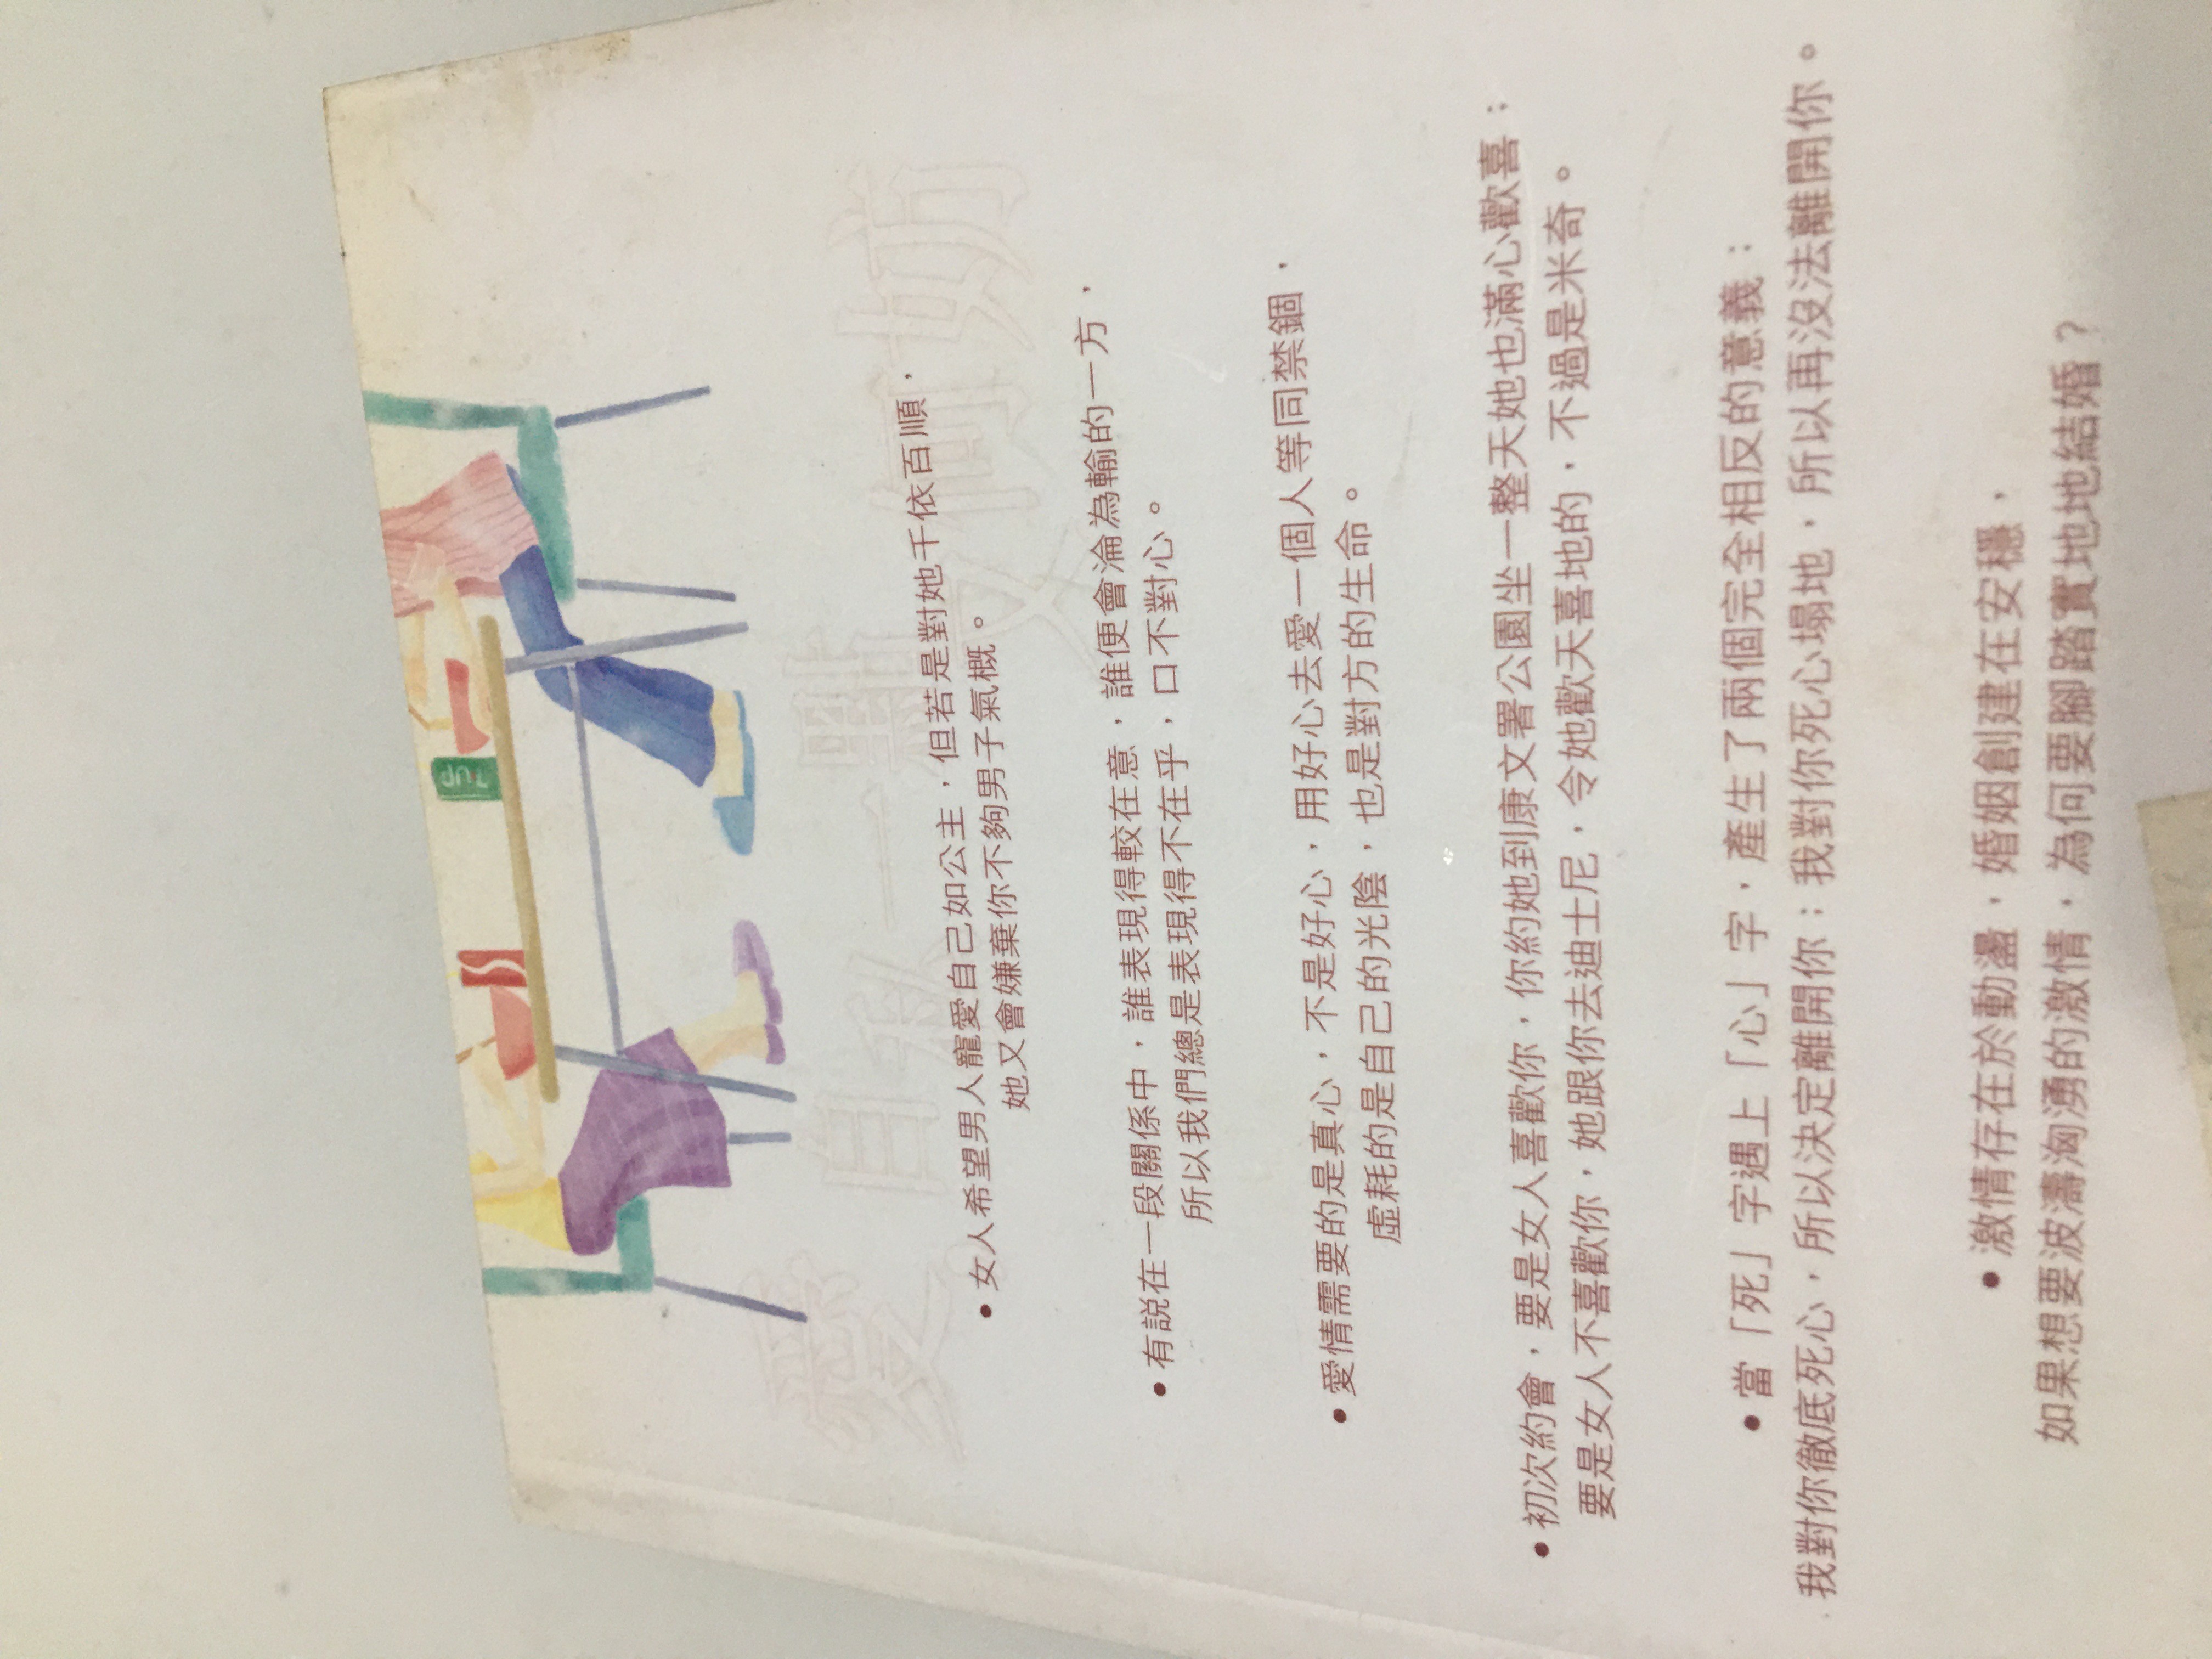 7up
愛，自私一點又何妨
•女人希望男人寵愛自己如公主，但若是對她千依百順，
她又會嫌棄你不夠男子氣概。
•有說在一段關係中，誰表現得較在意，誰便會淪為輸的一方，
所以我們總是表現得不在乎，口不對心。
•愛情需要的是真心，不是好心，用好心去愛一個人等同禁錮，
虛耗的是自己的光陰，也是對方的生命。
•初次約會，要是女人喜歡你，你約她到康文署公園坐一整天她也滿心歡喜；
要是女人不喜歡你，她跟你去迪士尼，令她歡天喜地的，不過是米奇。
•當「死」字遇上「心」字，產生了兩個完全相反的意義：
我對你徹底死心，所以決定離開你；我對你死心塌地，所以再沒法離開你。
•激情存在於動盪，婚姻創建在安穩，
如果想要波濤洶湧的激情，為何要腳踏實地地結婚？